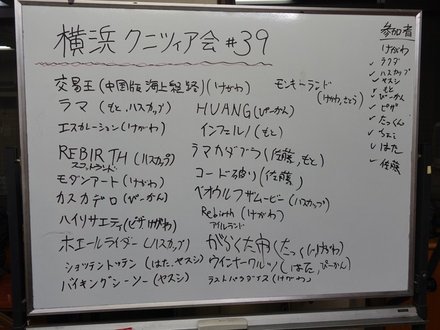 横浜 クニツィア会 #39
交易王(中国版 海上経路)(けがわ)
ラマ (もと, ハスカップ)
エスカレーション(けがわ)
REBIRTH (ハスカップ)
スコットランド
モダンアート (けがわ)
カスカデロ(ぴーかん)
ハイソサエティ(ピザ けがわ)
ホエールライダー (ハスカップ)
ショッテントッテン (はた, ヤスシ)
バイキングシーソー (ヤスシ)
モンキーランド
(けがわ, さとう)
HUANG(ぴーかん)
インフェルノ (もと)
ラマカダブラ (佐藤, もと)
コード破り (佐藤)
ベオウルフ ザ ムービー (ハスカップ)
Rebirth (けがわ)
アイルランド
がらくた市 (たっくん, けがわ)
ウインナークルツ (はた, ぴーかん)
ラストパラダイス (けがわ)
参加者
けがわ
✓ ラクダ
✓ ハスカップ
✓ ヤスシ
✓ もと
✓ ぴーかん
✓ ピザ
✓ たっくん
✓ はた
✓ 佐藤